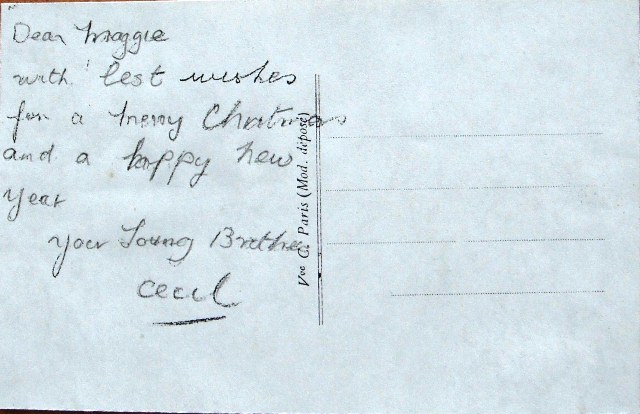 Dear Maggie
with best wishes
for a merry Christmas
and a happy new
year
your Loving Brother
Cecil
Vve C. Paris (Mod. déposé)